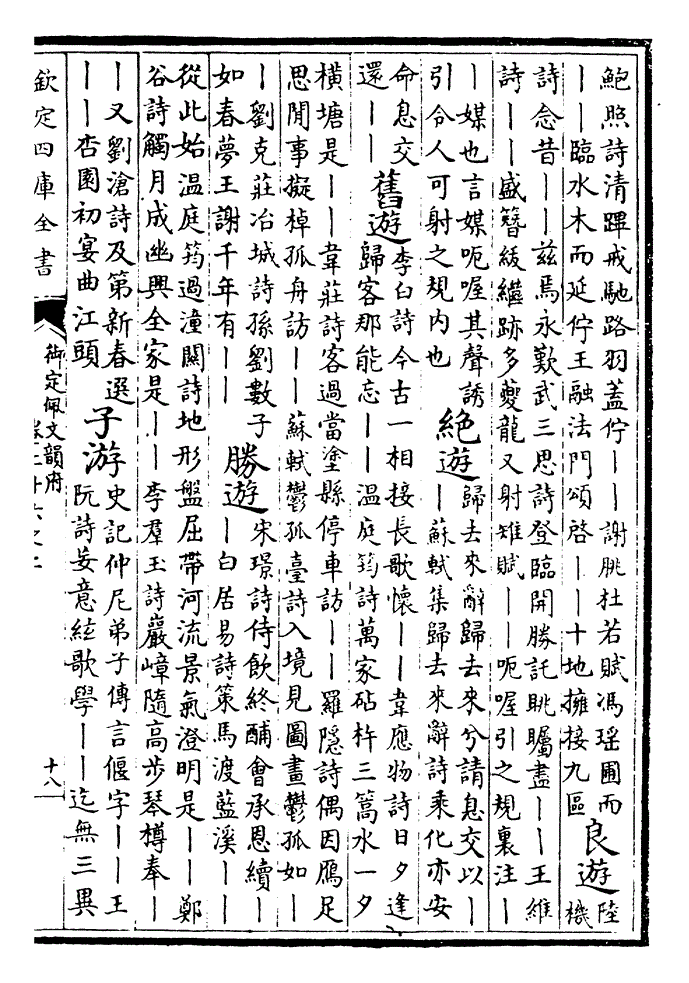 鮑照詩清蹕戒馳路羽蓋佇丨丨謝朓杜若賦馮瑶圃而
丨丨臨水木而延佇王融法門頌啓丨丨十地擁接九區
良遊
陸
機
詩念昔丨丨兹焉永歎武三思詩登臨開勝託眺矚盡丨丨王維
詩丨丨盛簪紱繼跡多夔龍又射雉賦丨丨呃喔引之規裏注丨
丨媒也言媒呃喔其聲誘
引令人可射之規内也
絶遊
歸去來辭歸去來兮請息交以丨
丨蘇軾集歸去來辭詩乘化亦安
命息交
還丨丨
舊遊
李白詩今古一相接長歌懷丨丨韋應物詩日夕逢
歸客那能忘丨丨温庭筠詩萬家砧杵三篙水一夕
橫塘是丨丨韋莊詩客過當塗縣停車訪丨丨羅隱詩偶因鴈足
思閒事擬棹孤舟訪丨丨蘇軾鬱孤臺詩入境見圖畫鬱孤如丨
丨劉克莊冶城詩孫劉數子
如春夢王謝千年有丨丨
勝遊
宋璟詩侍飲終酺會承恩續丨
丨白居易詩策馬渡藍溪丨丨
從此始温庭筠過潼關詩地形盤屈帶河流景氣澄明是丨丨鄭
谷詩觸月成幽興全家是丨丨李羣玉詩巖嶂隨高步琴樽奉丨
丨又劉滄詩及第新春選
丨丨杏園初宴曲江頭
子游
史記仲尼弟子傳言偃字丨丨王
阮詩妄意絃歌學丨丨迄無三異
欽定四庫全書
御定佩文韻府
卷二十六之二
十八